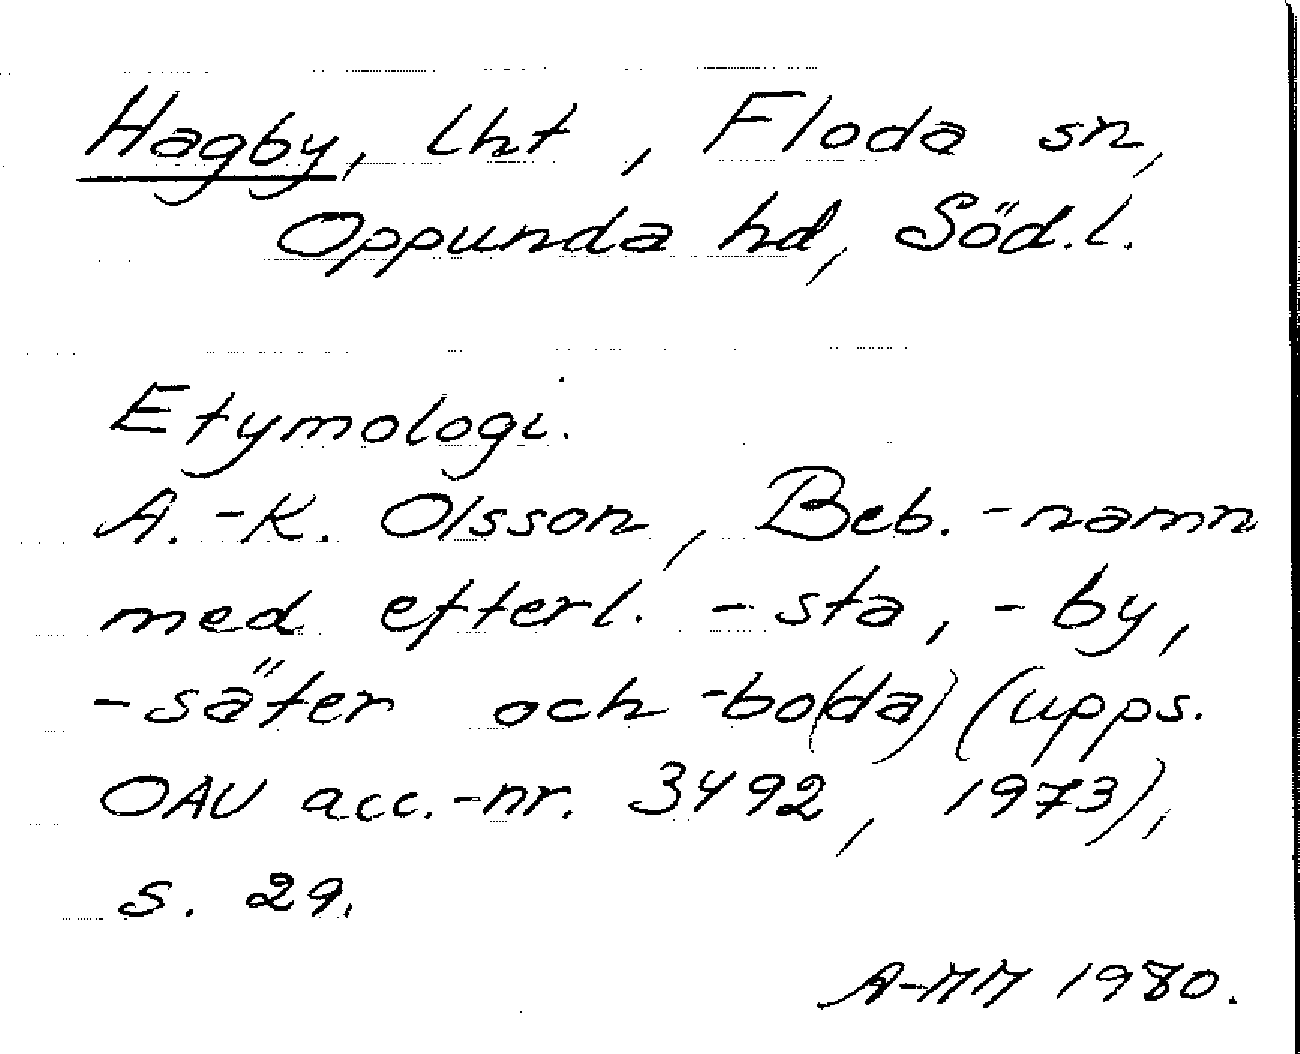 Hagby, lht, Floda sn,
Oppunda hd, Söd.l.
Etymologi.
A.-K. Olsson, Beb.-namn
med efterl. -sta, -by,
-säter och -bo(da) (upps.
OAU acc.-nr. 3492, 1973),
s. 29.
A-MM 1980.